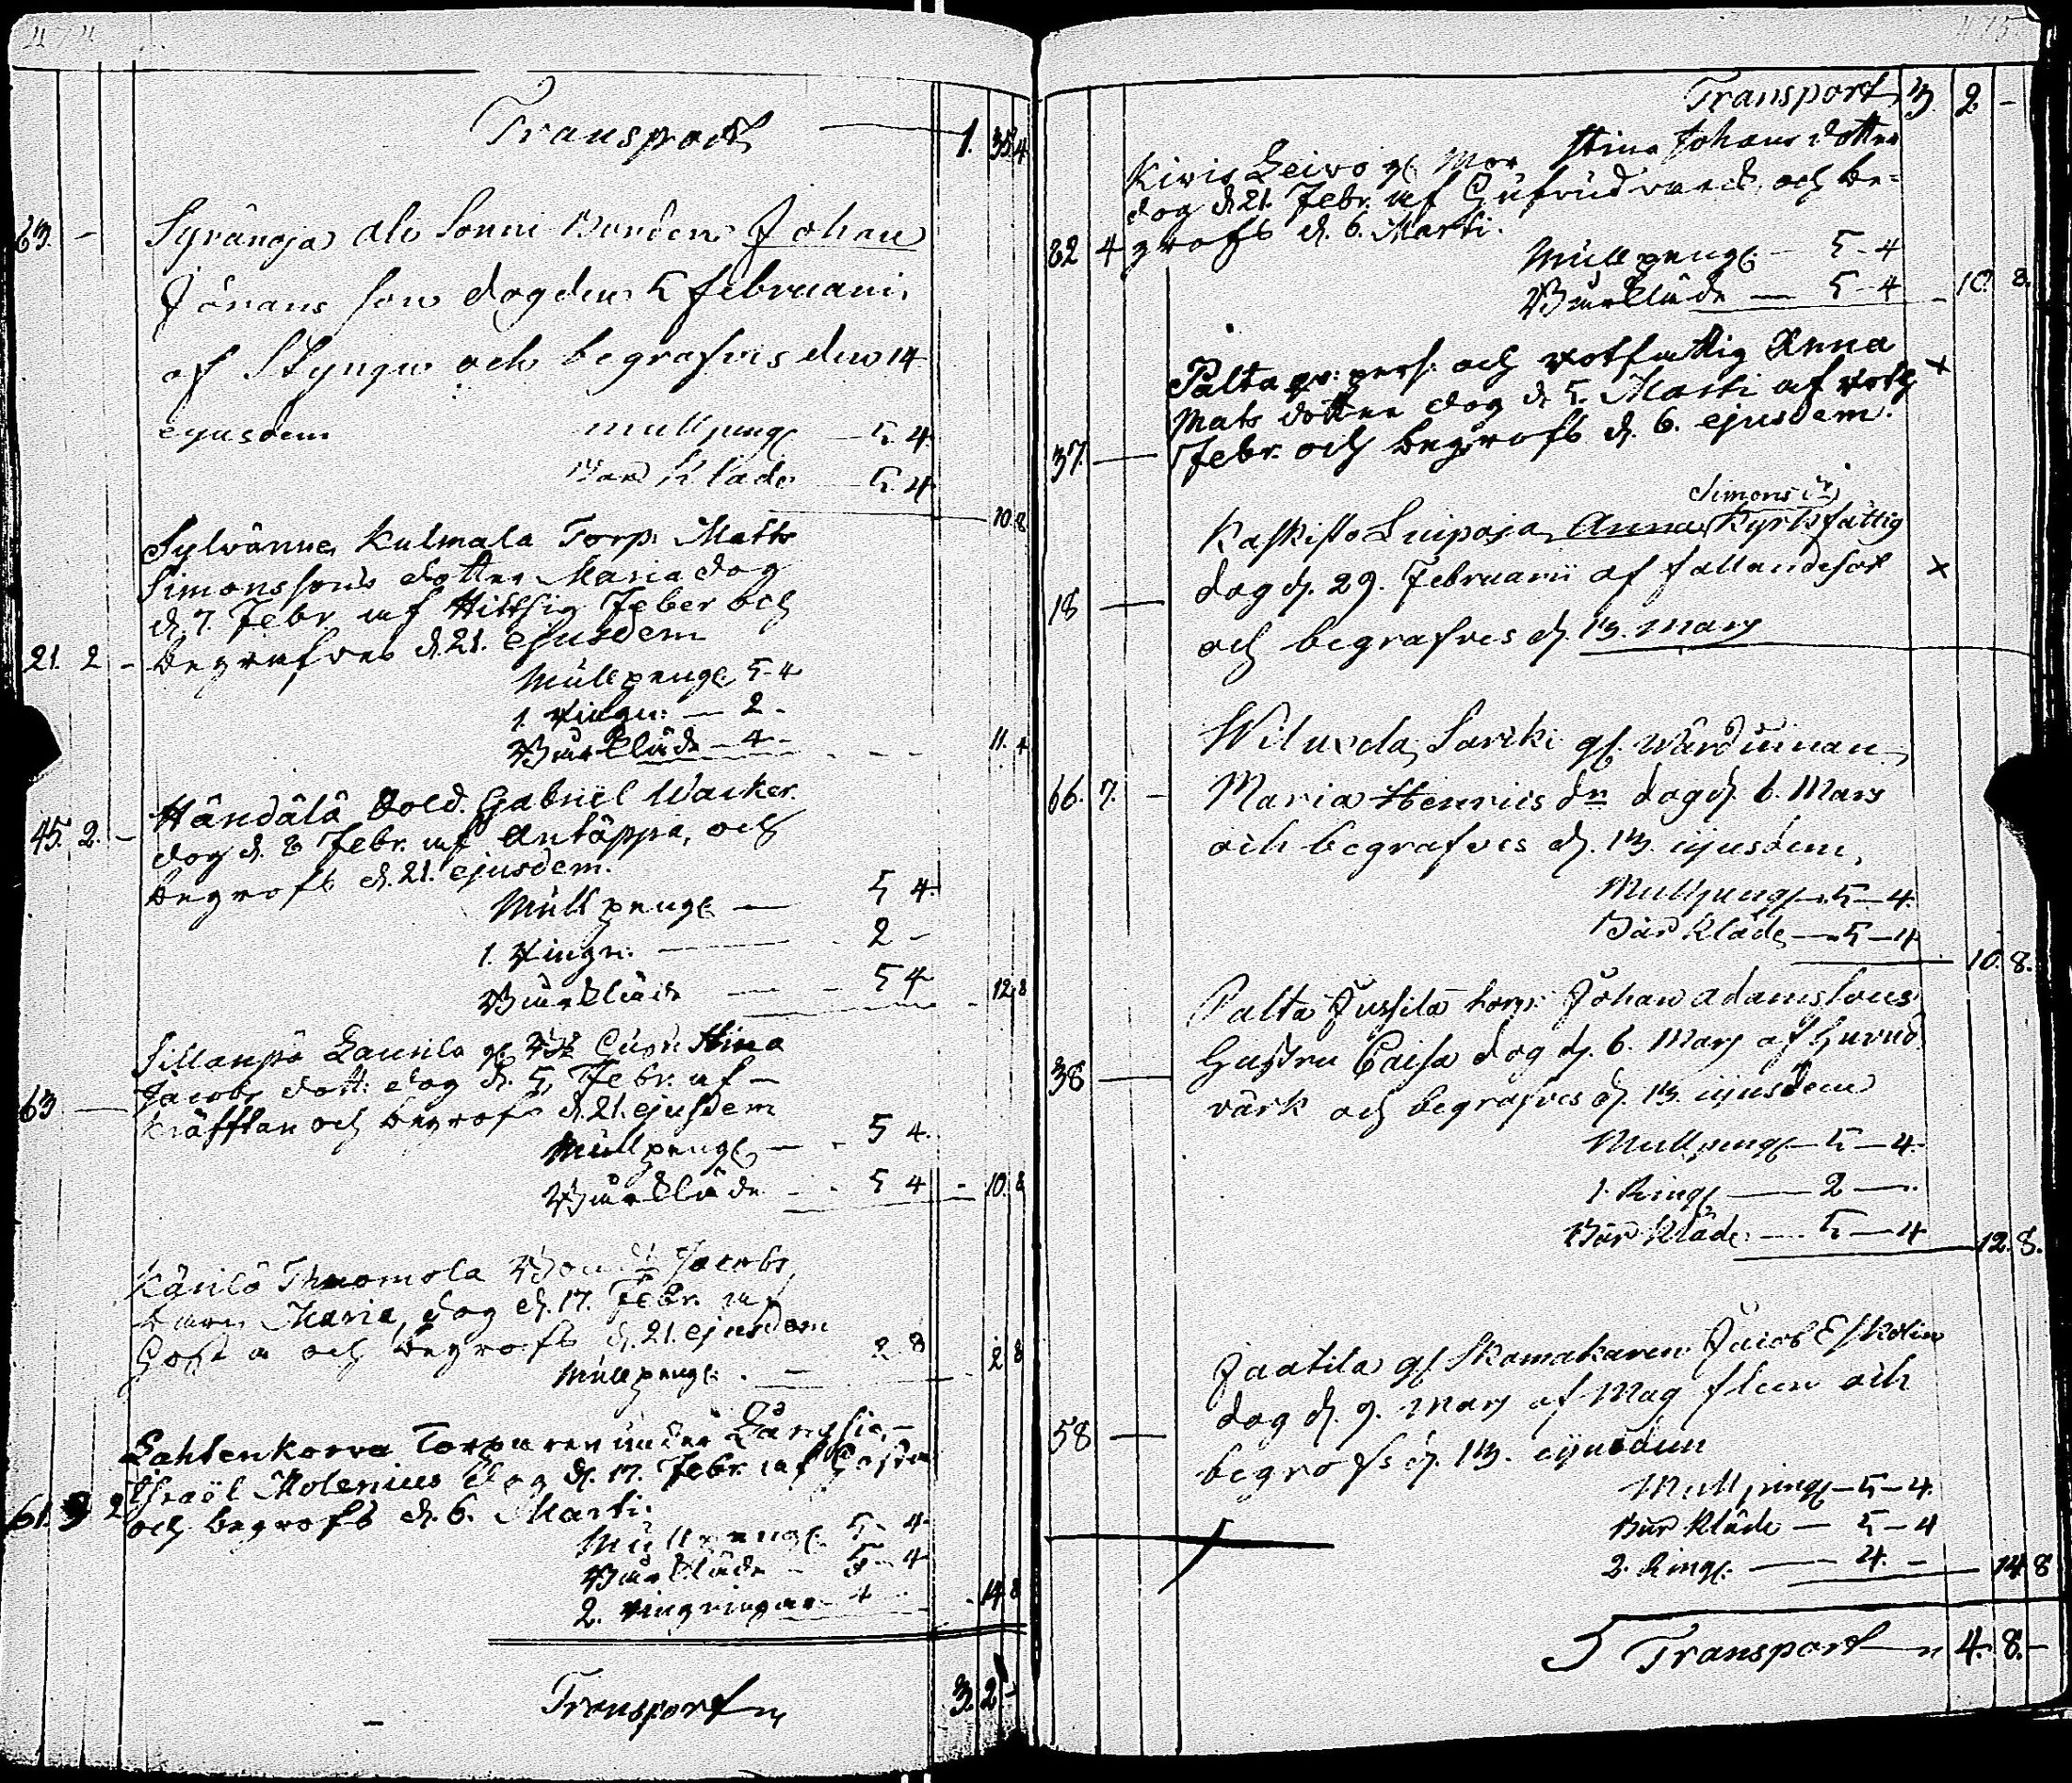 474
Transport — 1. 35 4
63. — Syränoja Ale Sonni Bonden Johan
Jörans son dog den 5 februarii
af Styngn och begrafves den 14
ejusdem mullpeng — 5 4
Bårkläde — 5 4
10 8
Sylvänne Kulmala Torp. Matts
Simonssons dotter Maria dog
d. 7. Febr. af Hittsig Feber och
21. 2 - begrafves d. 21. ejusdem
Mullpeng 5-4
1. Ringn: — 2 -
Bårkläde - 4 - 11. 4
Händälä Sold. Gabriel Wacker.
45. 2. - dog d. 8 Febr. af Antäppa, och
begrofs d. 21. ejusdem.
Mullpeng — 5 4
1. Ringn: — 2 -
Bårkläde — 5 4 - 12 8
Sillanpä Laurila gl. Stina
Jacobs dott: dog d. 5. Febr. af -
63 — Kräfftan och begrofs d. 21. ejusdem
Mullpeng — 5 4.
Bårkläde - - 5 4 - 10. 8
Känilä Thuomola Bond Jacobs
barn Maria, dog d. 17. Febr. af
Hosta och begrofs d. 21. ejusdem
Mullpeng. — 2 8 2 8
Lahtenkorva Torparen under Långsio, -
Israël Molenius dog d. 17. Febr. af Hosta
61. 9 2 och begrofs d. 6. Marti.
Mullpeng. 5 - 4
Bårkläde - 5 - 4
2. ringningar 4 - 14 8
Transport 3. 2 -
475
Transport 3. 2 -
Kivis Leivo gl. Mor Stina Johans dotter
dog d. 21. Febr. af Hufvudvärck, och be-
82 4 grofs d. 6. Marti.
Mullpeng — 5 - 4
Bårkläde — 5 - 4 - 10. 8.
Palta qv: pers: och rotfattig Anna x
Mats dotter dog d. 5. Marti af Röth
37. — Febr. och begrofs d. 6. ejusdem.
Simons dr
Kaskisto Luipaja Anna Kyrkfattig
18 — dog d. 29. Februarii af fallandesot x
och begrafves d. 13. Mars
Wiluxela Sariki gl. Wärdinnan
66. 7. - Maria Henrics dr dog d. 6. Mars
och begrafves d. 13. ejusdem,
Mullpeng — 5 — 4.
Bårkläde — 5 — 4
10. 8.
Palta Jussila torp: Johan Adamssons
Hustru Caisa dog d. 6. Mars af Hufvud
38 — värk och begrafves d. 13. ejusdem
Mullpeng — 5 — 4.
1. Ring — 2 —.
Bårkläde — 5 — 4
12. 8.
Jaatila gl. Skomakaren Jacob Eskolin
dog d. 9. Mars af Mag fleen och
58 — begrofs d. 13. ejusdem
Mullpeng — 5 — 4.
Bårkläde — 5 — 4
2. Ring. — 4. - 14 8
Transport 4. 8. -